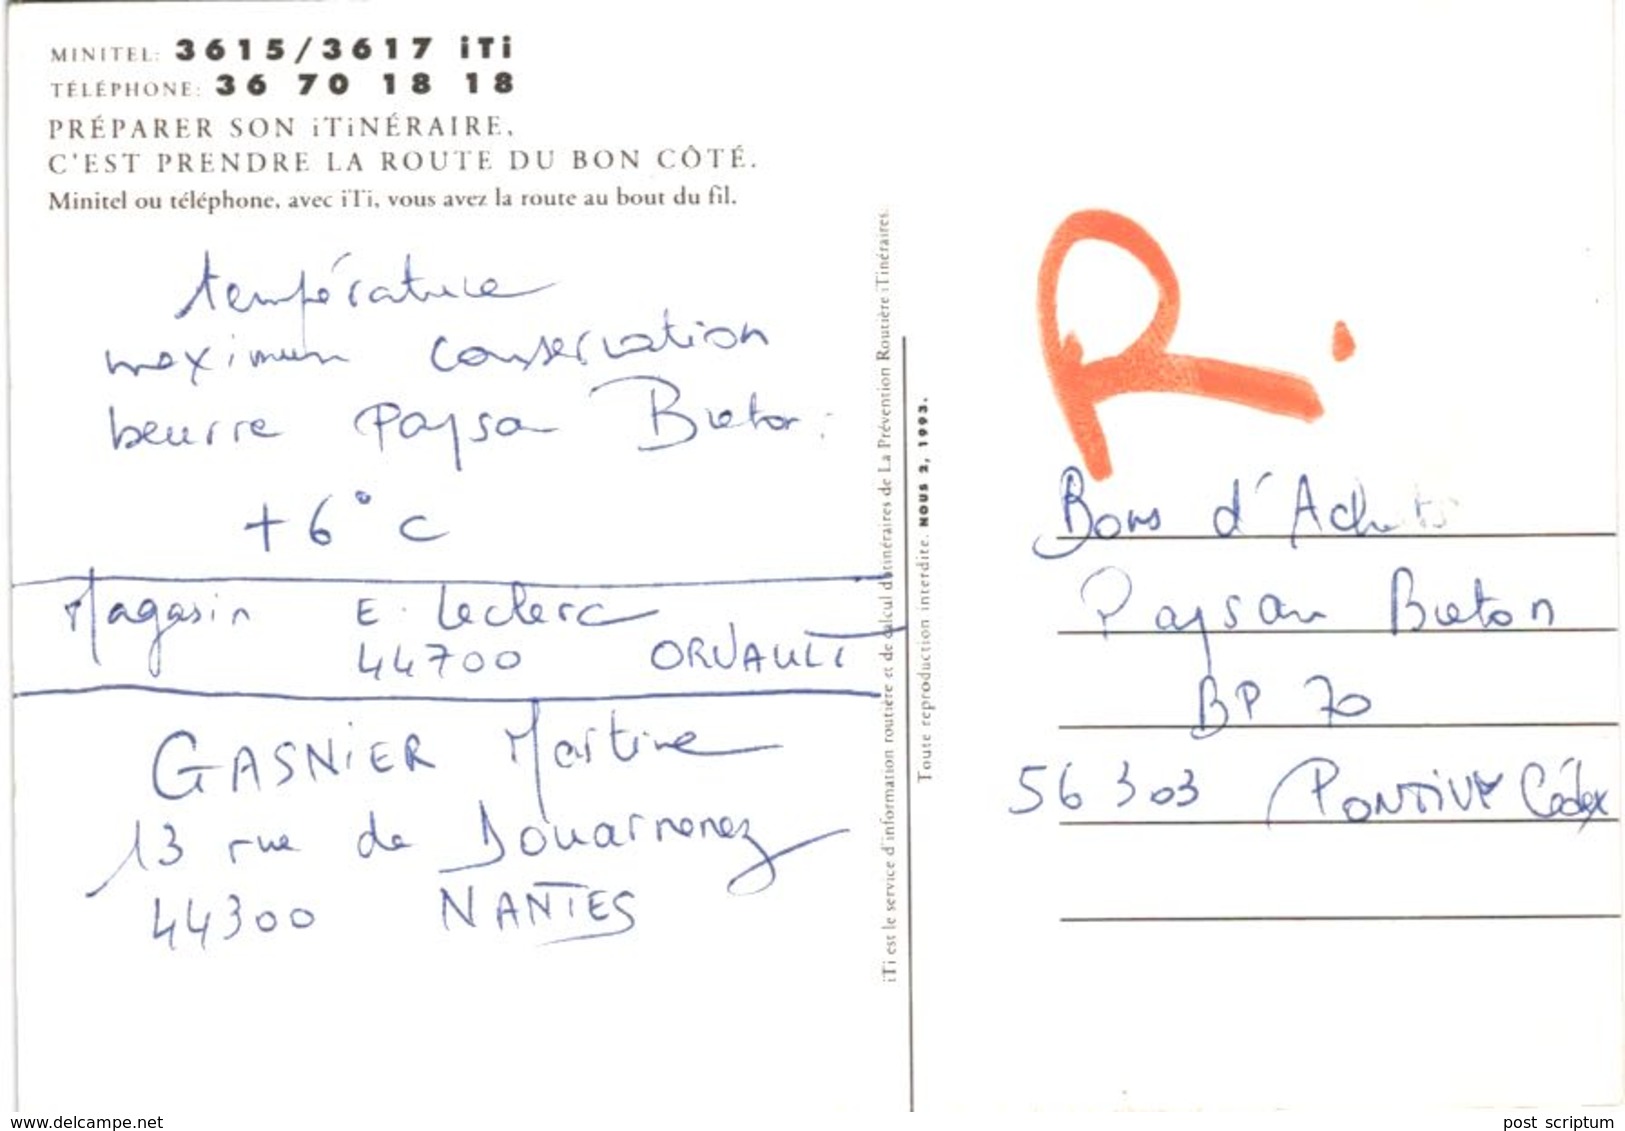 MINITEL: 3615/3617 iTi
TÉLÉPHONE: 36 70 18 18
PRÉPARER SON iTiNÉRAIRE,
C'EST PRENDRE LA ROUTE DU BON CÔTÉ.
Minitel ou téléphone, avec iTi, vous avez la route au bout du fil.
température
maximum conservation
beurre Paysan Breton :
+6°C
Magasin E. Leclerc
44700 ORVAULT
GASNIER Martine
13 rue de Douarnenez
44300 NANTES
iTi est le service d'information routière et de calcul d'itinéraires de La Prévention Routière iTinéraires.
Toute reproduction interdite. NOUS 2, 1993.
R.
Bons d'Achats
Paysan Breton
BP 70
56303 PONTIVY Cédex
www.delcampe.net
post scriptum